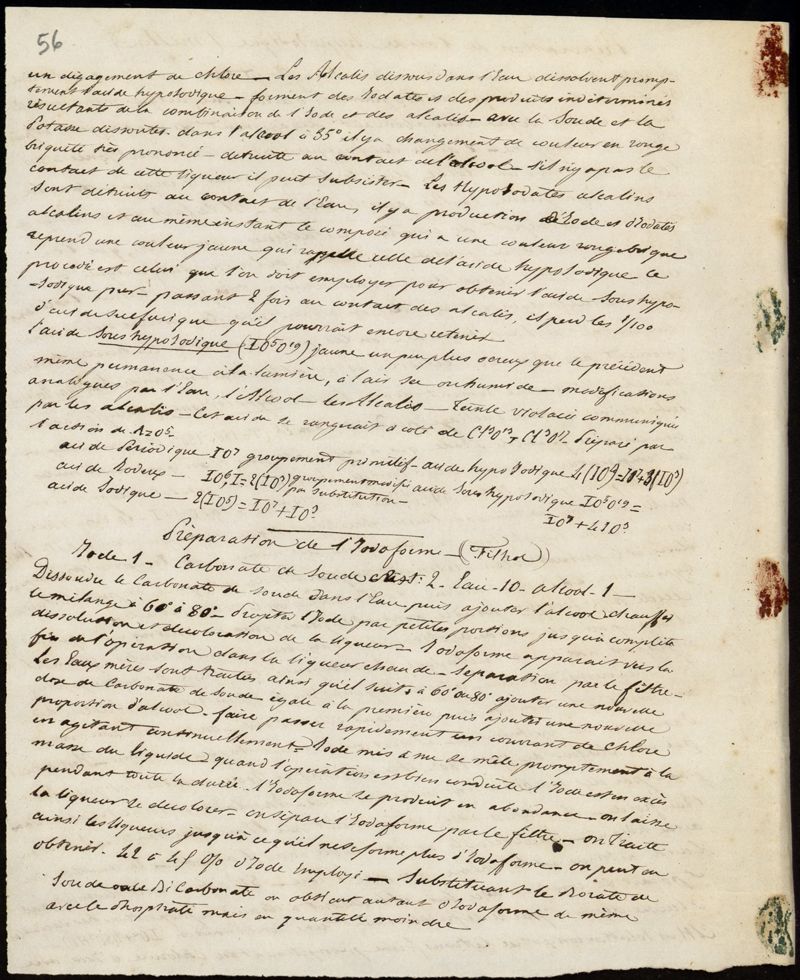 56
un dégagement de chlore — Les Alcalis dissous dans l'Eau dissolvent promp-
tement l'acide hypoiodique — forment des Iodates et des produits indéterminés
résultants de la combinaison de l'Iode et des alcalis — avec la Soude et la
Potasse dissoutes dans l'alcool à 35° il y a changement de couleur en rouge
brique très prononcé — détruite au contact de l'alcool — s'il n'y a pas le
contact de cette liqueur il peut subsister — Les Hypoiodates alcalins
sont détruits au contact de l'Eau, il y a production d'Iode et d'Iodates
alcalins et au même instant le composé qui a une couleur rouge brique
reprend une couleur jaune qui rappelle celle de l'acide hypoiodique le
procédé est celui que l'on doit employer pour obtenir l'acide Sous hypo-
-iodique pur — passant 2 fois au contact des alcalis, il perd les 1/100
d'acide sulfurique qu'il pourrait encore retenir
L'acide Sous hypoiodique (I⁵O¹⁹) jaune un peu plus ocreux que le précédent
même permanence à la lumière, à l'air sec ou humide — modifications
analogues par l'Eau, l'Alcool — les Alcalis — Teinte violacé communiquée
par les alcalis — Cet acide se rangerait à coté de Cl³O¹³, Cl³O¹⁷ — Préparé par
l'action de AzO⁵.
acide Periodique IO⁷ groupement primitif — acide hypo Iodique 4(IO⁴) = IO⁷ + 3(IO³)
acide Iodeux — IO⁶, I = 2(IO³) groupement modifié par substitution — acide Sous hypoiodique I⁵O¹⁹ =
acide Iodique — 2(IO⁵) = IO⁷ + IO³
IO⁷ + 4IO³
Préparation de l'Iodoforme — (Filhol)
Iode 1 — Carbonate de Soude crist. 2 — Eau — 10 — alcool — 1 —
Dissoudre le Carbonate de soude dans l'Eau puis ajouter l'alcool chauffer
le mélange à 60° à 80° — Projeter l'Iode par petites portions jusqu'à complète
dissolution et décoloration de la liqueur — Iodoforme apparait vers la
fin de l'opération dans la liqueur chaude — Separation par le filtre —
Les Eaux mères sont traitées ainsi qu'il suit: à 60° ou 80° ajouter une nouvelle
dose de Carbonate de Soude égale à la première puis ajouter une nouvelle
proportion d'alcool — faire passer rapidement un courant de Chlore
en agitant continuellement = Iode mis à nu se mêle promptement à la
masse du liquide — quand l'opération est bien conduite l'Iode est en excès
pendant toute la durée. L'Iodoforme se produit en abondance — on laisse
la liqueur se décolorer — on sépare l'Iodoforme par le filtre — on traite
ainsi les liqueurs jusqu'à ce qu'il ne se forme plus d'Iodoforme — on peut en
obtenir 42 à 45 0/0 d'Iode Employé — Substituant le Borate de
Soude ou le Bi Carbonate on obtient autant d'Iodoforme de même
avec le phosphate mais en quantité moindre